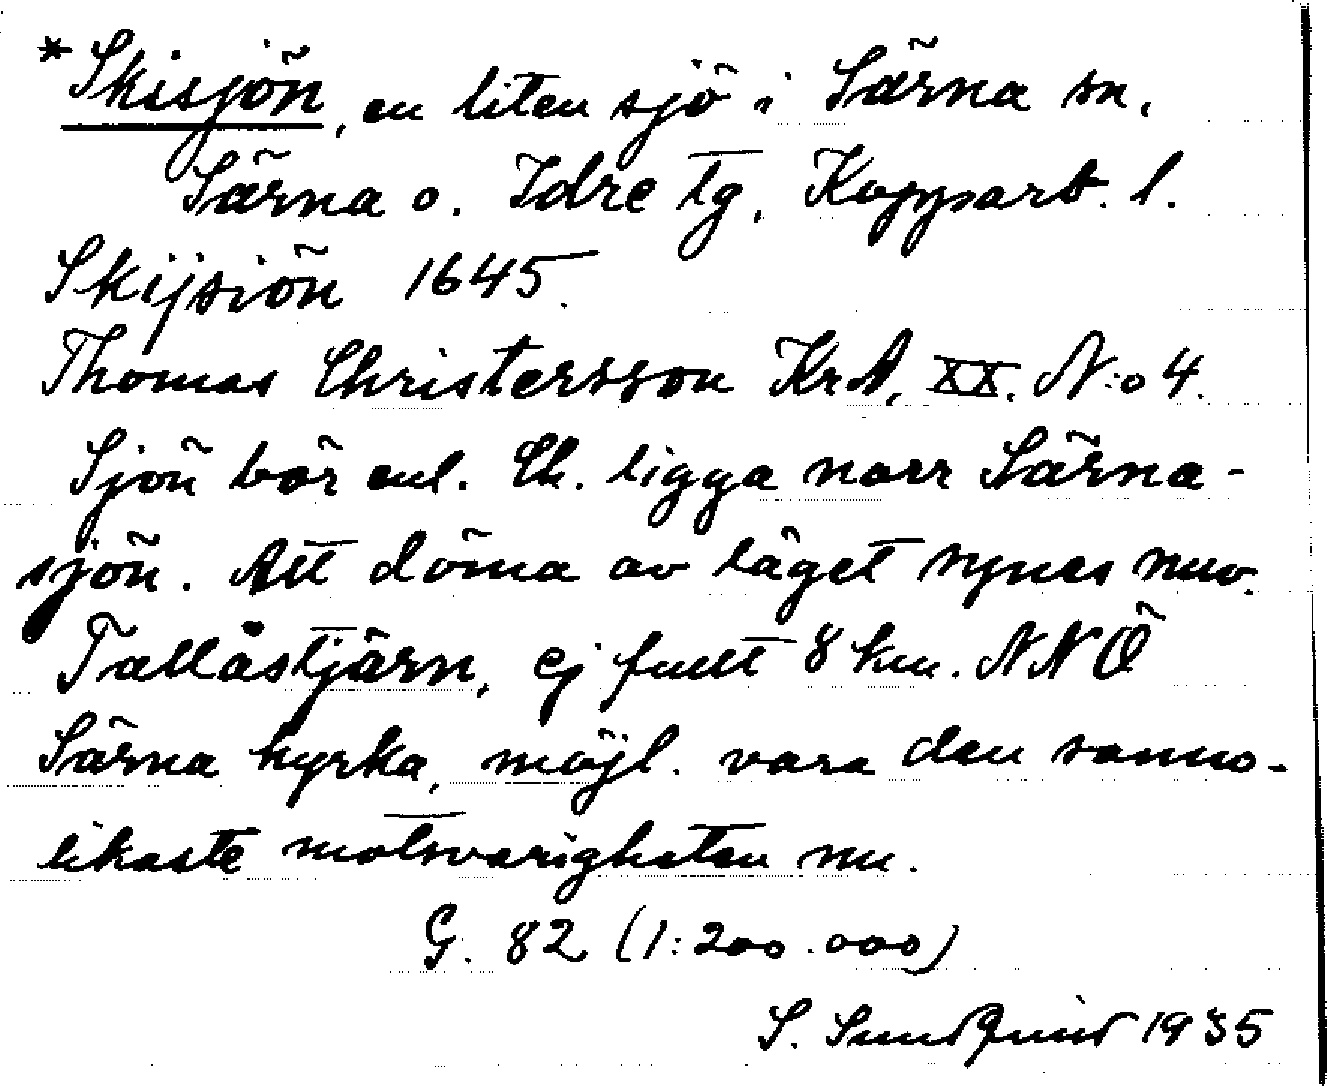 *Skisjön, en liten sjö i Särna sn,
Särna o. Idre tg, Kopparb. l.
Skijsiön 1645.
Thomas Christersson KrA, XX. N:o 4.
Sjön bör enl. Ch. ligga norr Särna-
sjön. Att döma av läget synes nuv.
Tallåstjärn, ej fullt 8 km. NNÖ
Särna kyrka, möjl. vara den sanno-
likaste motsvarigheten nu.
G. 82 (1:200.000)
S. Sundqvist 1935